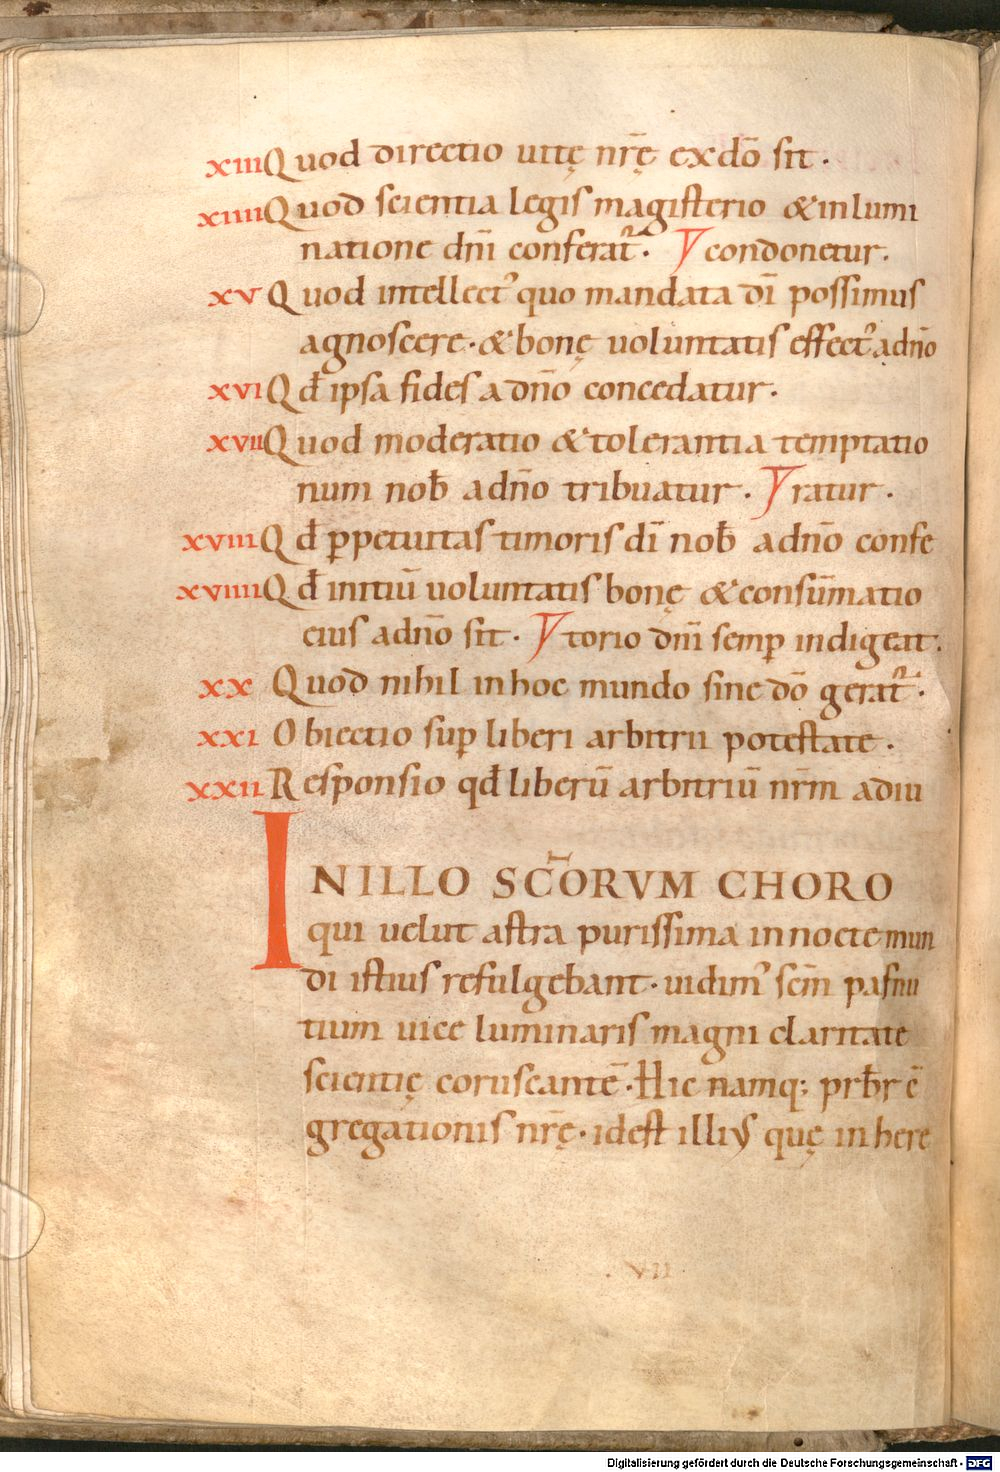 xiii Quod directio uitę nr̄ę exdō sit .
xiiii Quod scientia legis magisterio & inlumi
natione dn̄i conferat᷑ . condonetur .
xv Quod intellect᾽ quo mandata dī possimus
agnoscere . & bonę uoluntatis effect᾽ adn̄o
xvi Qđ ipsa fides a dn̄o concedatur .
xvii Quod moderatio & tolerantia temptatio
num nob̄ adn̄o tribuatur . ratur .
xviii Qđ ꝑpetuitas timoris dī nob̄ adn̄o confe
xviiii Qđ initiū uoluntatis bonę & consūmatio
eius adn̄o sit . torio dn̄i semꝑ indigeat .
xx Quod nihil inhoc mundo sine dō gerat᷑ .
xxi Obiectio suꝑ liberi arbitrii potestate .
xxii Responsio qđ liberū arbitriū nr̄m adiu
INILLO SC̄ORVM CHORO
qui uelut astra purissima innocte mun
di istius refulgebant . uidim᾽ sc̄m pafnu
tium uice luminaris magni claritate
scientię coruscantē . Hic namq; prb̄r c̄
gregationis nr̄ę . idest illiꝰ quę inhere
. VII
Digitalisierung gefördert durch die Deutsche Forschungsgemeinschaft - DFG